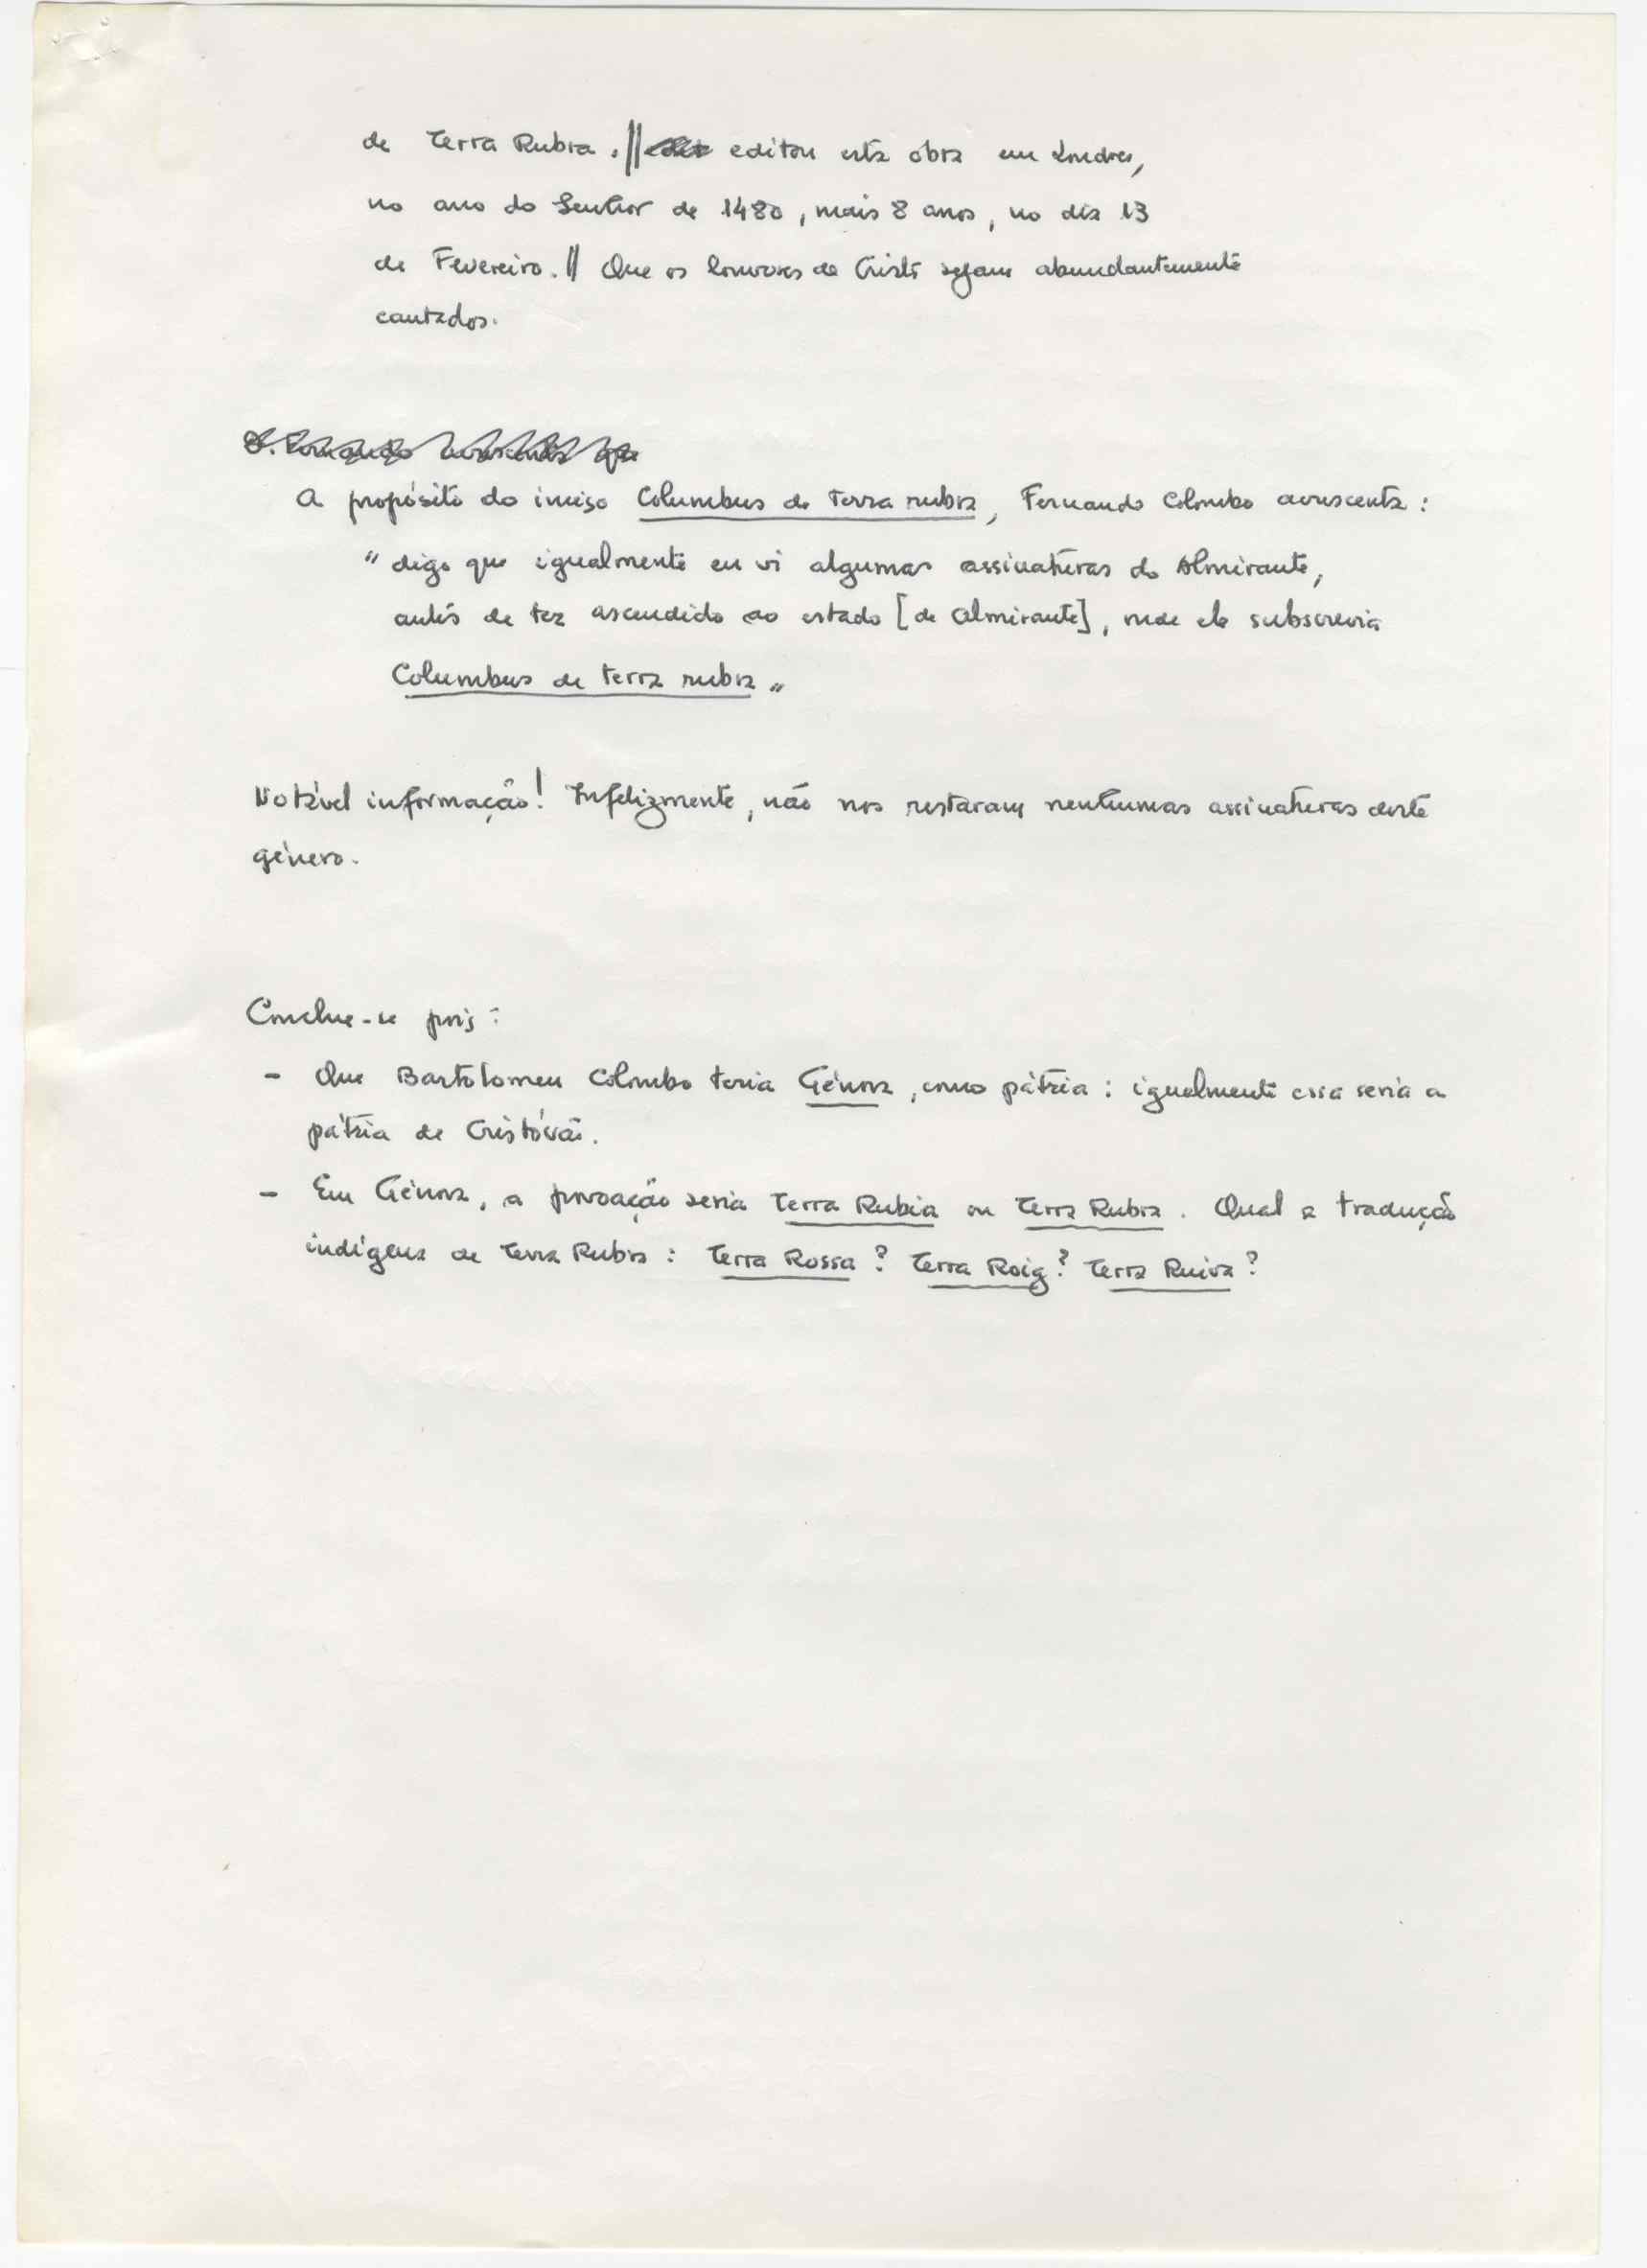 de Terra Rubra. || editou esta obra em Londres,
no ano do Senhor de 1480, mais 8 anos, no dia 13
de Fevereiro. || Que os louvores de Cristo sejam abundantemente
cantados.
A propósito do inciso Columbus de Terra rubra, Fernando Colombo acrescenta:
" digo que igualmente eu vi algumas assinaturas do Almirante,
antes de ter ascendido ao estado [de Almirante], onde ele subscrevia
Columbus de terra rubra "
Notável informação! Infelizmente, não nos restaram nenhumas assinaturas deste
género.
Conclue-se pois:
- Que Bartolomeu Colombo teria Génova, como pátria: igualmente essa seria a
pátria de Cristóvão.
- Em Génova, a povoação seria Terra Rubia ou Terra Rubra. Qual a tradução
indígena de Terra Rubra: Terra Rossa? Terra Roig? Terra Ruiva?